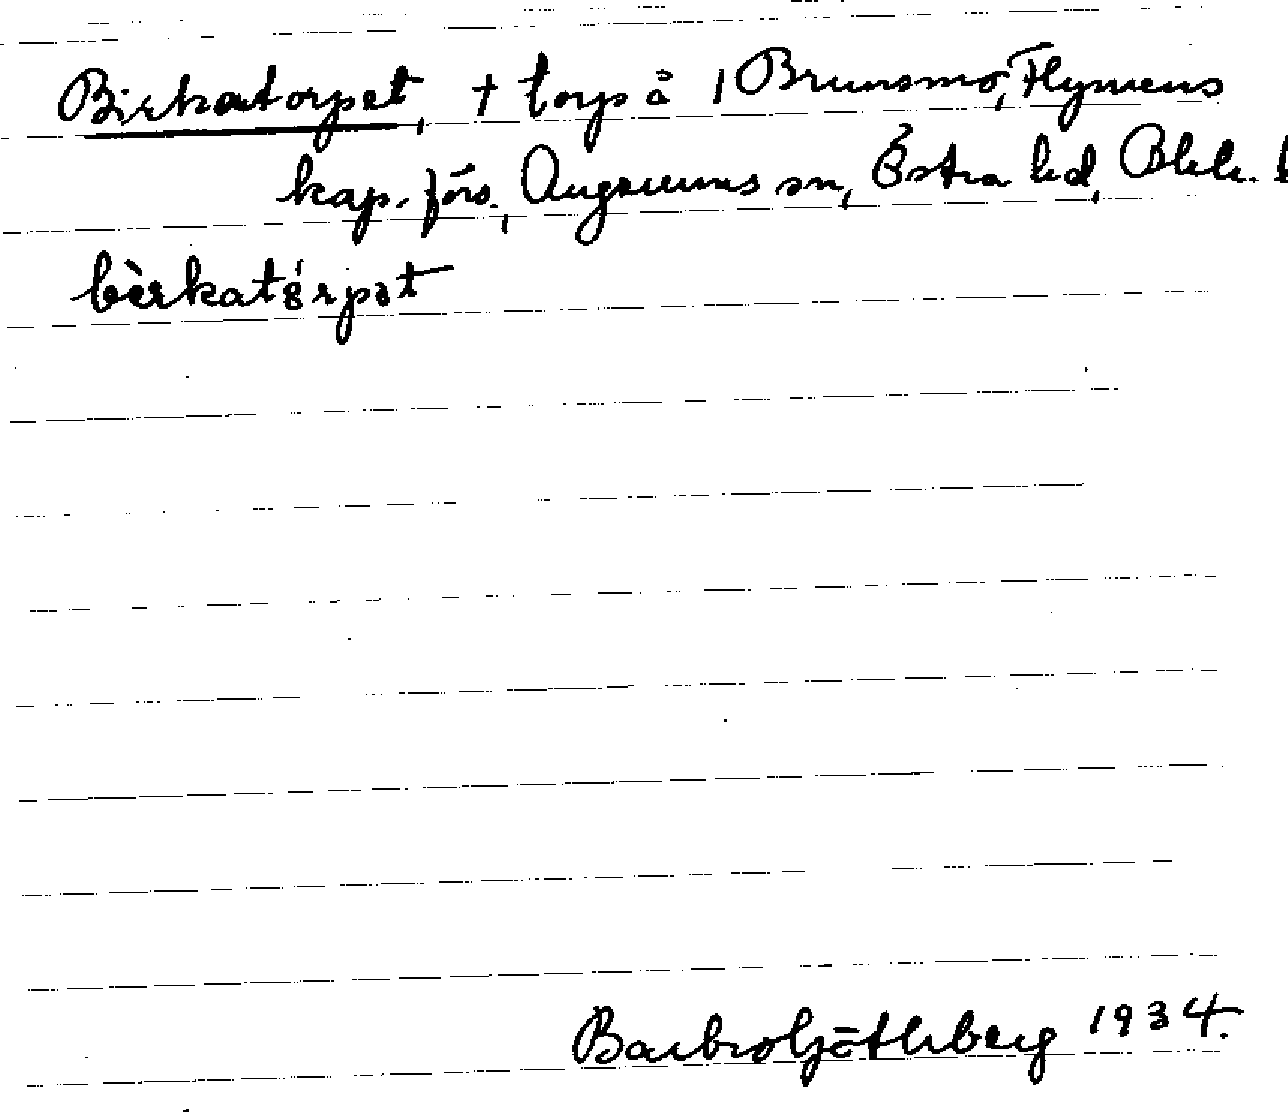 Birkatorpet, † torp å 1 Brunsmo, Flymens
kap. förs., Augerums sn, Östra hd, Blek. l
bèrkatórpət
Barbro Götlberg 1934.